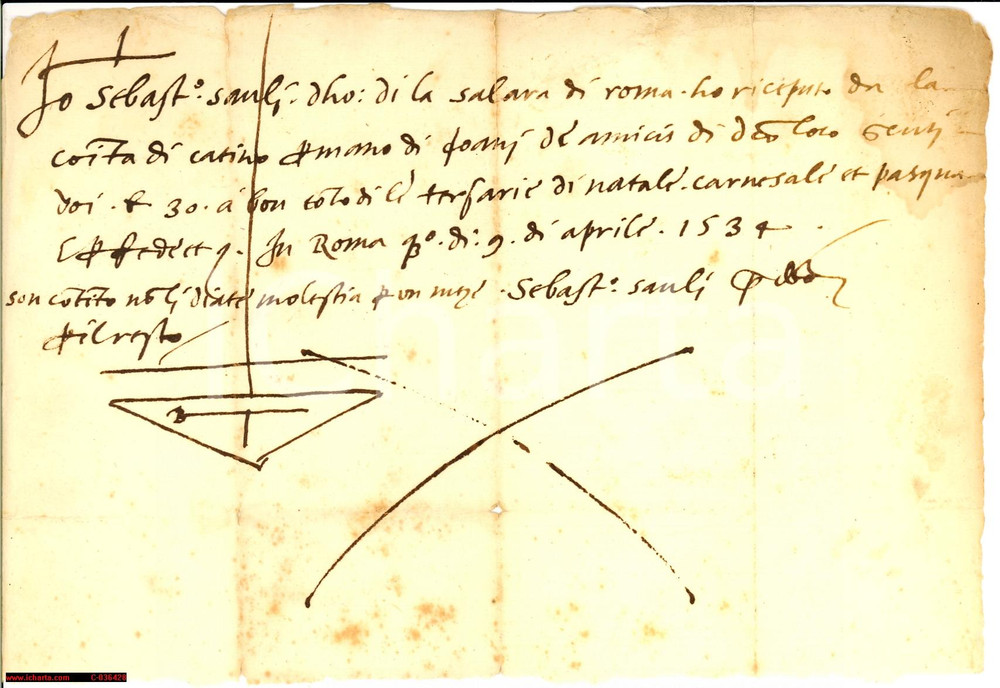 Io Sebast.º sauli . dho: di la salara di roma . ho riceputo da la
coīta di catino p mano di Joani de amicis di dco loco
doi . 30 . a bon coto di le tersarie di natale . carnesale et pasqua
In Roma . di . 9 . di aprile . 1534 .
son cotēto nō li diate molestia p un meze . Sebast.º sauli
p il resto
Icharta
www.icharta.com C-036428